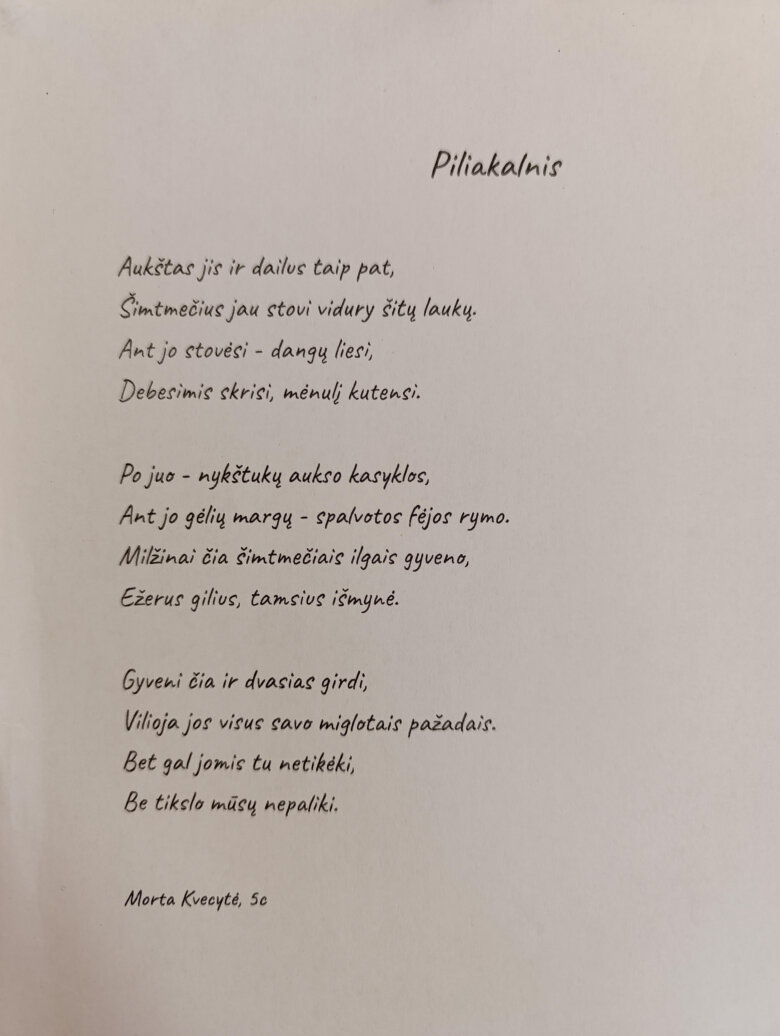 Piliakalnis
Aukštas jis ir dailus taip pat,
Šimtmečius jau stovi vidury šitų laukų.
Ant jo stovėsi - dangų liesi,
Debesimis skrisi, mėnulį kutensi.
Po juo - nykštukų aukso kasyklos,
Ant jo gėlių margų - spalvotos fėjos rymo.
Milžinai čia šimtmečiais ilgais gyveno,
Ežerus gilius, tamsius išmynė.
Gyveni čia ir dvasias girdi,
Vilioja jos visus savo miglotais pažadais.
Bet gal jomis tu netikėki,
Be tikslo mūsų nepaliki.
Morta Kvecytė, 5c